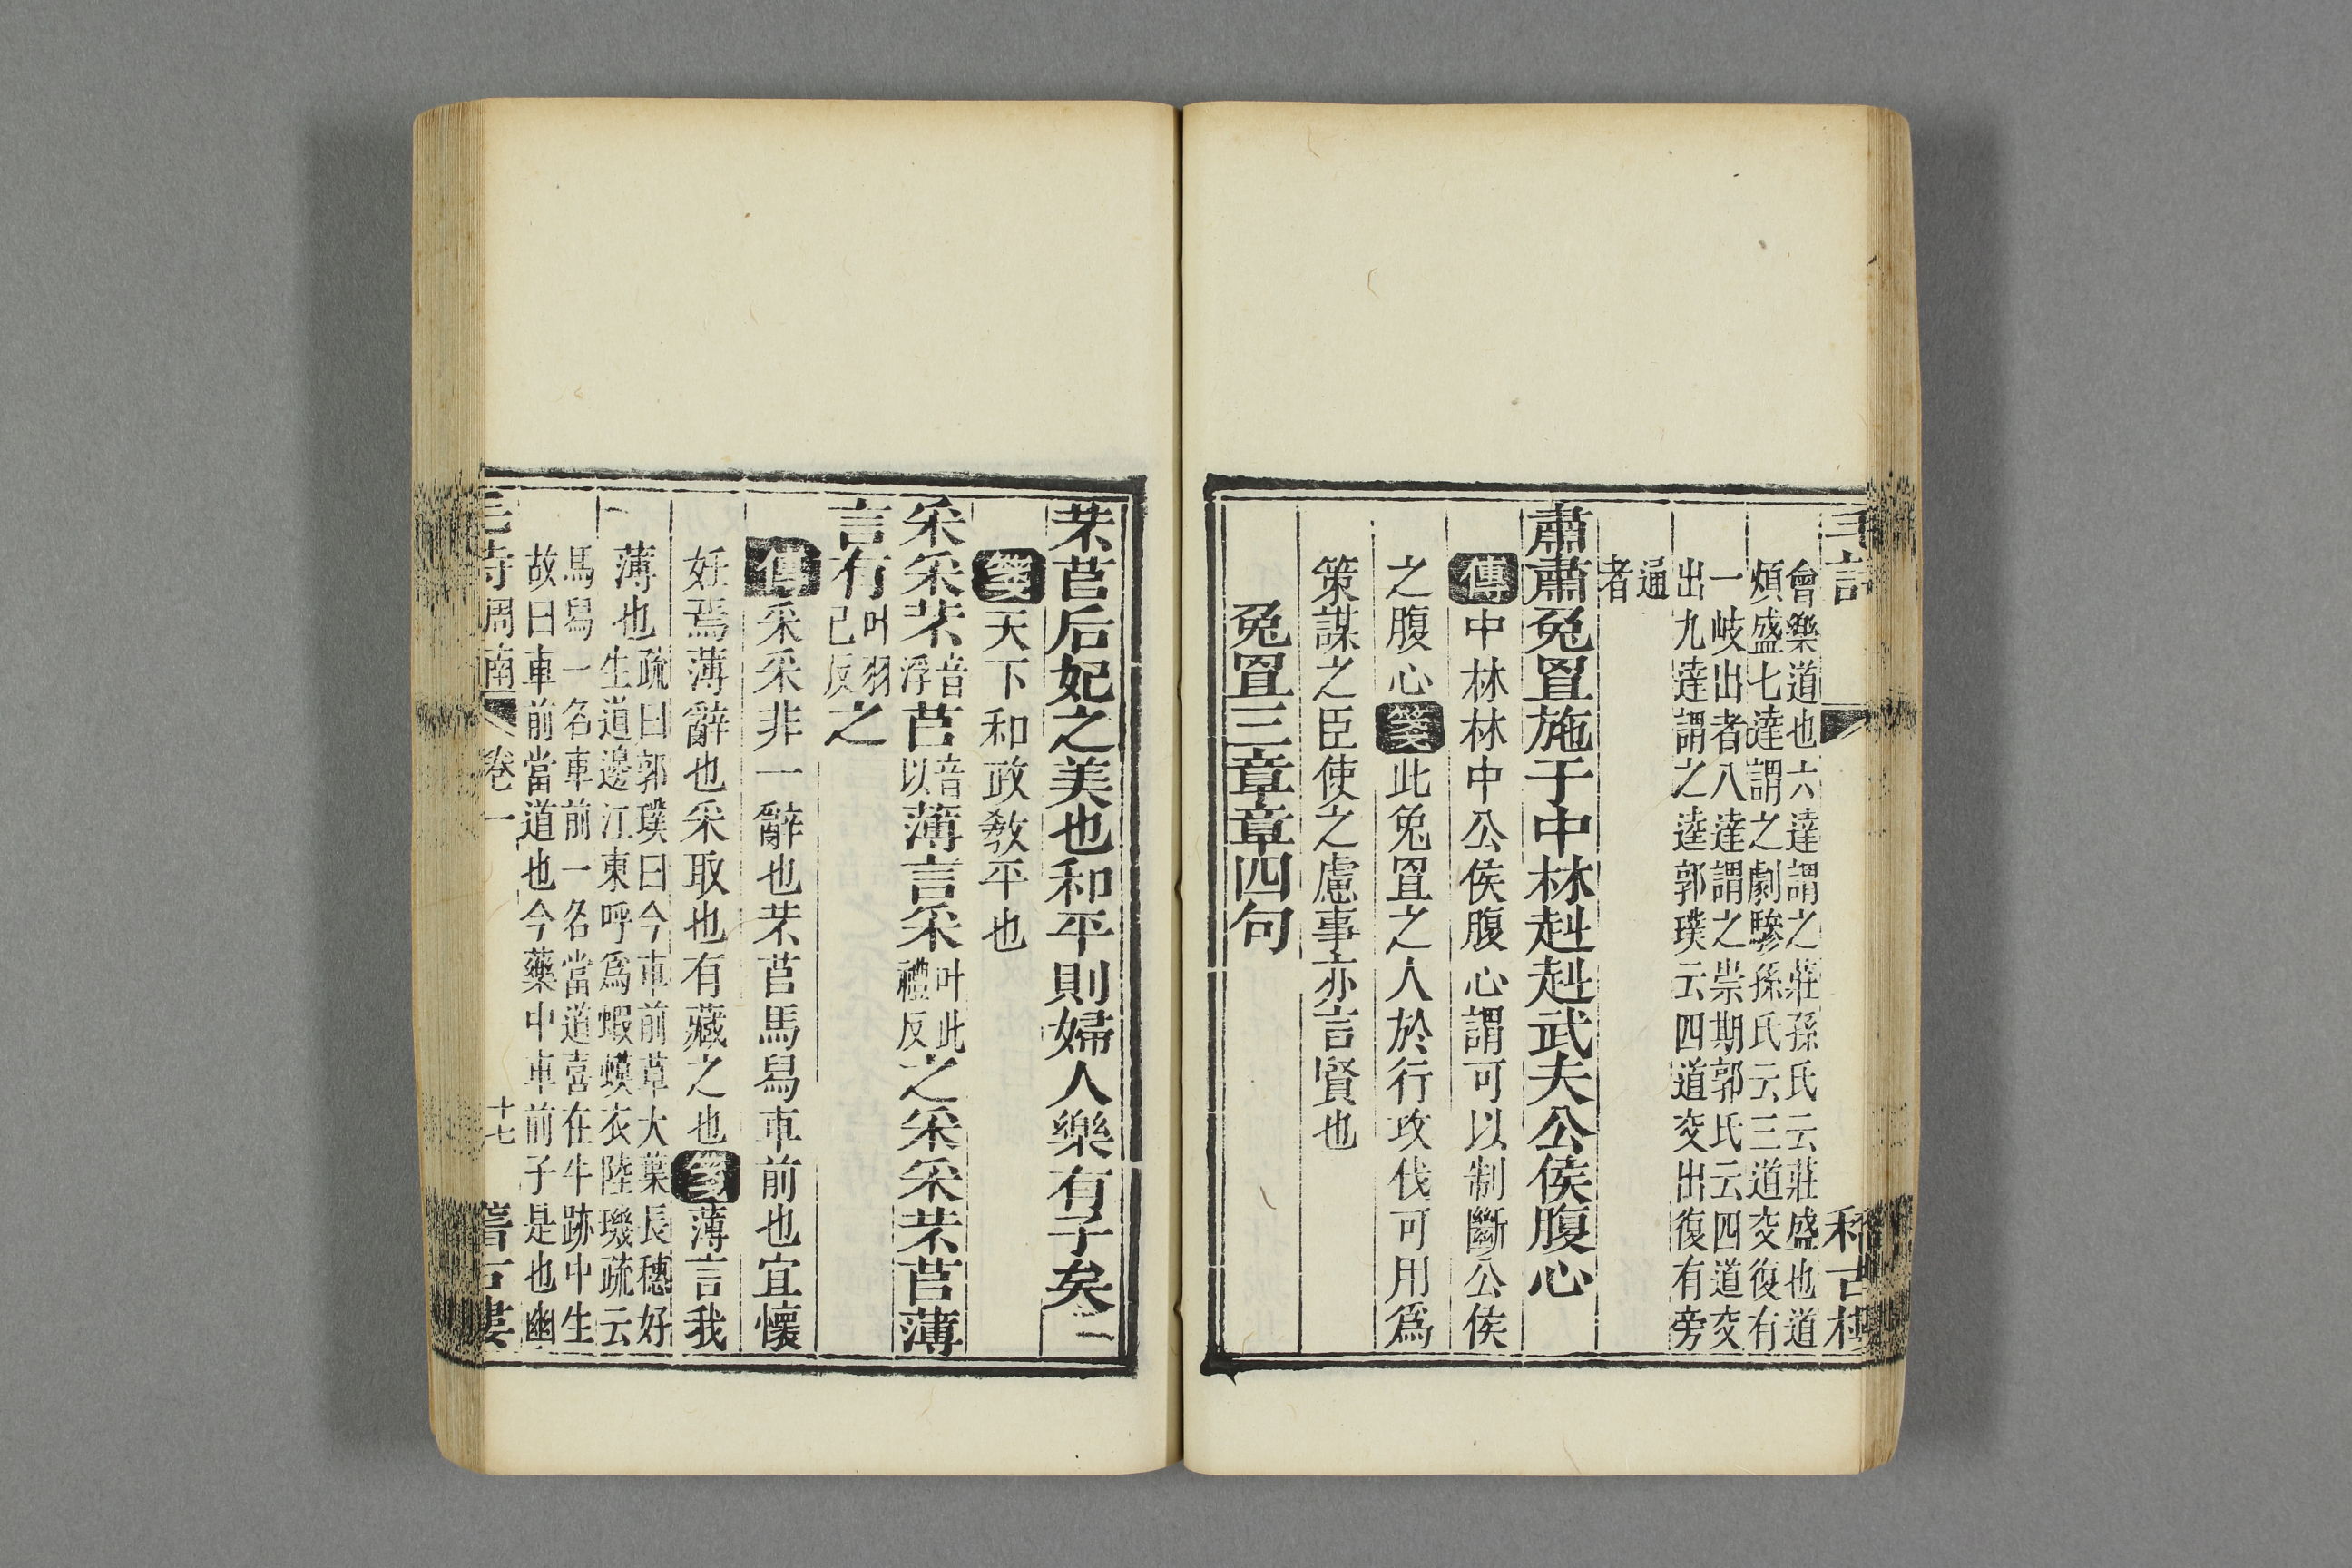 會樂道也六達謂之莊孫氏云莊盛也道
煩盛七達謂之劇驂孫氏云三道交復有
一岐出者八達謂之崇期郭氏云四道交
出九達謂之逵郭璞云四道交出復有旁
通
者
肅肅兔罝施于中林赳赳武夫公侯腹心
傳中林林中公侯腹心謂可以制斷公侯
之腹心箋此兔罝之人於行攻伐可用爲
策謀之臣使之慮事亦言賢也
兔罝三章章四句
芣苢后妃之美也和平則婦人樂有子矣
箋天下和政敎平也
采采芣音浮苢音以薄言采叶此禮反之采采芣苢薄
言有叶羽己反之
傳采采非一辭也芣苢馬舄車前也宜懷
妊焉薄辭也采取也有藏之也箋薄言我
薄也疏曰郭璞曰今車前草大葉長穗好
生道邊江東呼爲蝦蟆衣陸璣疏云
馬舄一名車前一名當道喜在牛跡中生
故曰車前當道也今藥中車前子是也幽
毛詩周南 卷一 十七